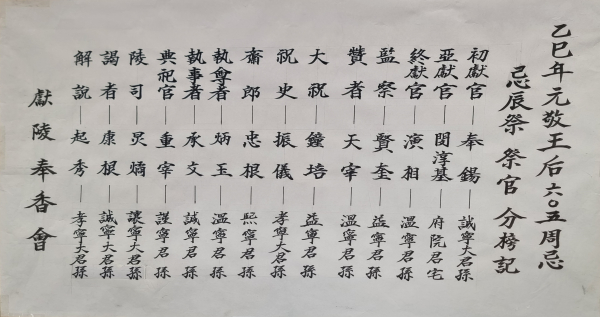 乙巳年元敬王后六〇五周忌
忌辰祭 祭官 分榜記
初獻官—奉錫—誠寧大君孫
亞獻官—閔淳基—府院君宅
終獻官—演相—溫寧君孫
監察—賢奎—益寧君孫
贊者—天宰—溫寧君孫
大祝—鐘培—益寧君孫
祝史—振儀—孝寧大君孫
齋郎—忠根—熙寧君孫
執尊者—炳玉—溫寧君孫
執事者—承文—誠寧君孫
典祀官—重宰—謹寧君孫
陵司—炅燏—讓寧大君孫
謁者—康根—誠寧大君孫
解說—起秀—孝寧大君孫
獻陵奉香會